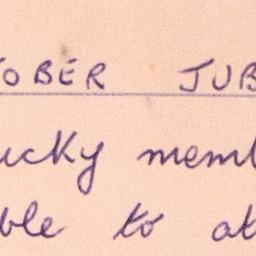 TOBER JUB
ucky memb
ble to at